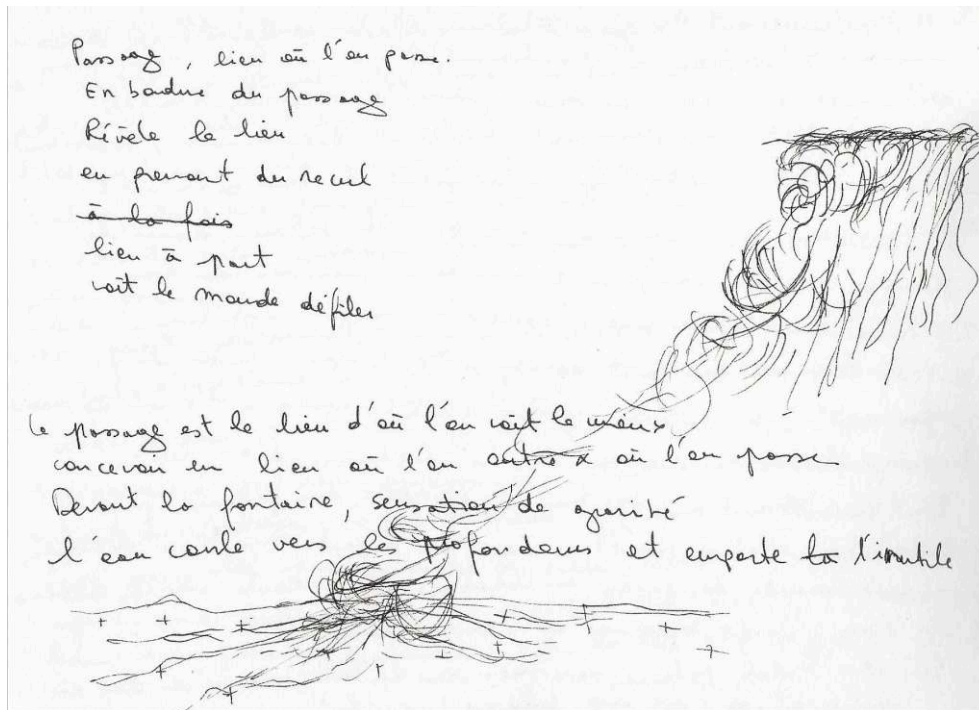 Passage, lieu où l'on passe.
En bordure du passage
Révèle le lieu
en prenant du recul
à la fois
lieu à part
voit le monde défiler
Le passage est le lieu d'où l'on voit le mieux
concevoir un lieu où l'on entre & où l'on passe
Devant la fontaine, sensation de gravité
l'eau coule vers les profondeurs et emporte la l'inutile